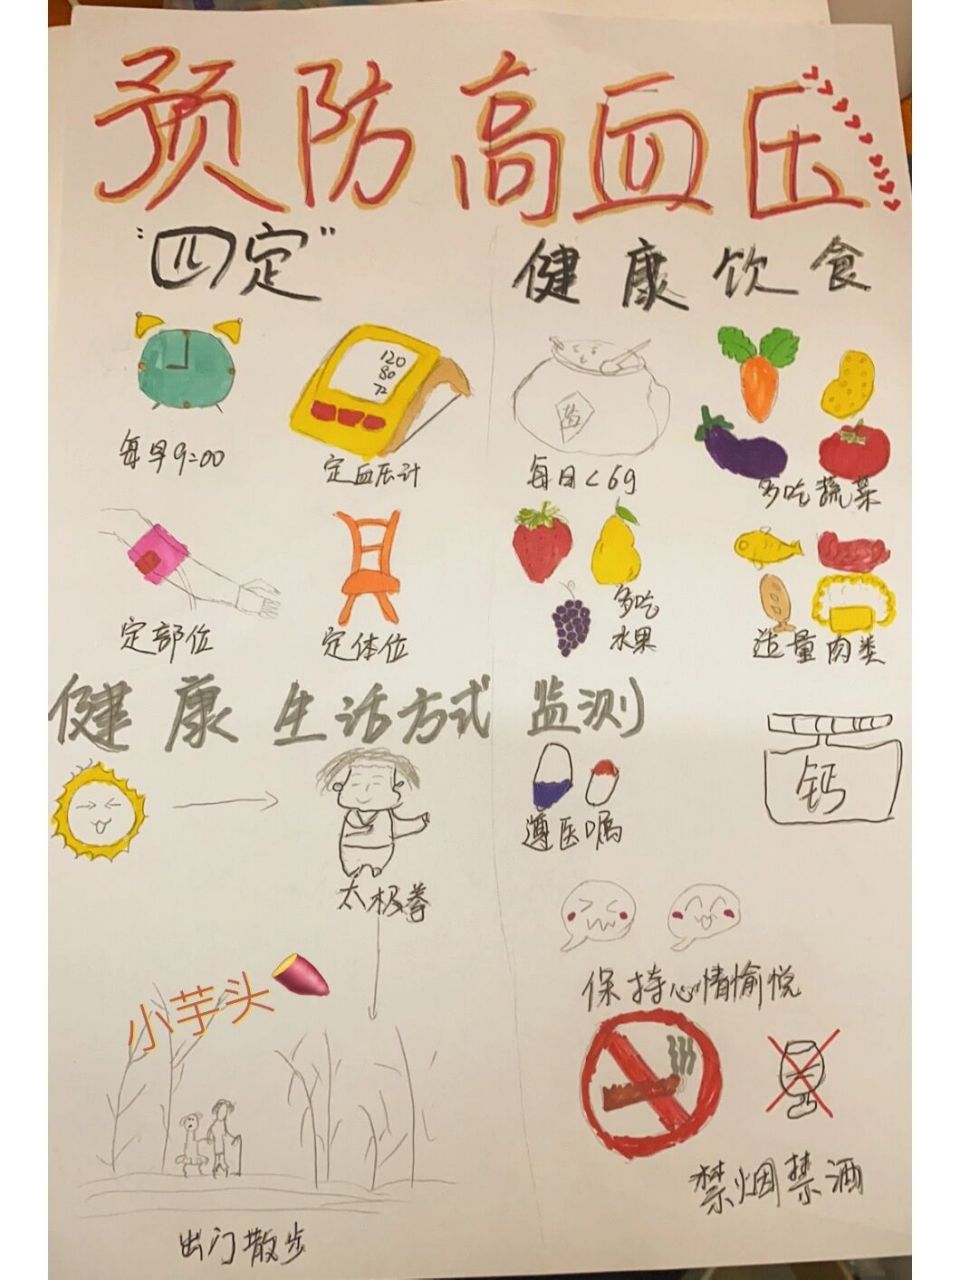 预防高血压
"四定"
每早9:00
120
80
72
定血压计
定部位
定体位
健康饮食
盐
每日<6g
多吃蔬菜
多吃
水果
适量肉类
健康生活方式
太极拳
小芋头
出门散步
监测
遵医嘱
钙
保持心情愉悦
禁烟禁酒